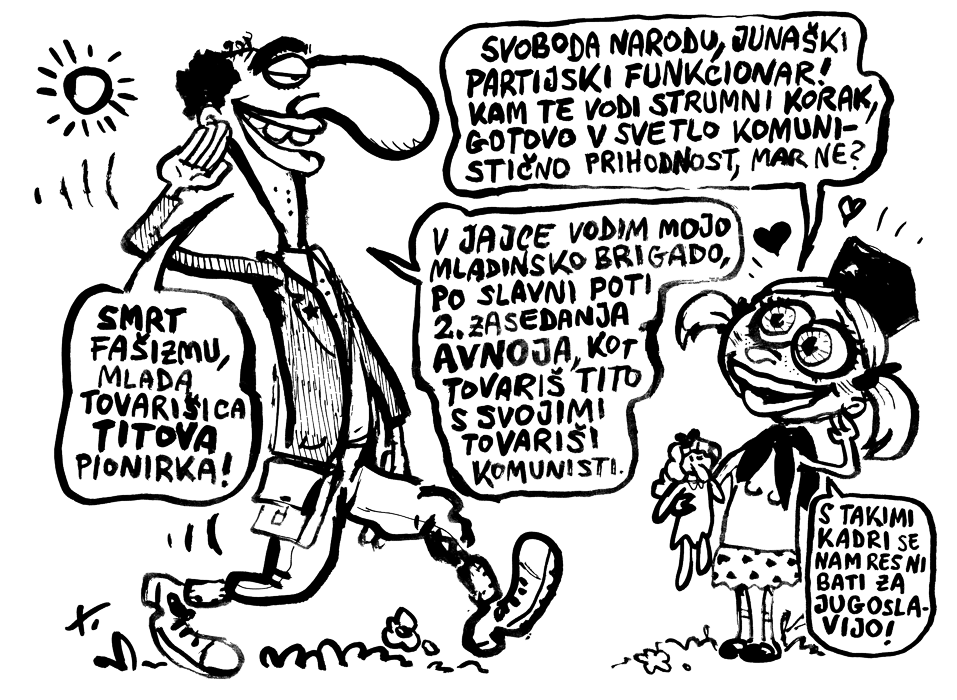 SMRT
FAŠIZMU,
MLADA
TOVARIŠICA
TITOVA
PIONIRKA!
SVOBODA NARODU, JUNAŠKI
PARTIJSKI FUNKCIONAR!
KAM TE VODI STRUMNI KORAK,
GOTOVO V SVETLO KOMUNI-
STIČNO PRIHODNOST, MAR NE?
V JAJCE VODIM MOJO
MLADINSKO BRIGADO,
PO SLAVNI POTI
2. ZASEDANJA
AVNOJA, KOT
TOVARIŠ TITO
S SVOJIMI
TOVARIŠI
KOMUNISTI.
S TAKIMI
KADRI SE
NAM RES NI
BATI ZA
JUGOSLA-
VIJO!